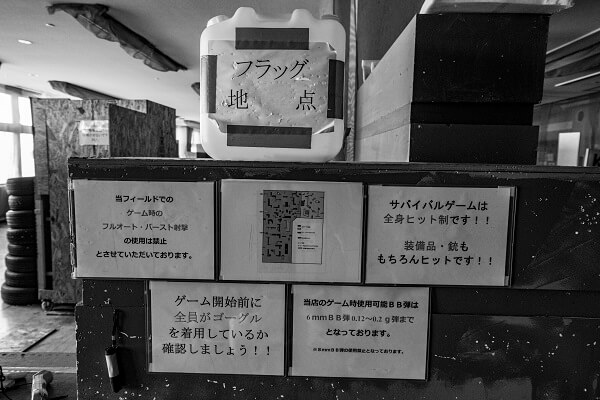 フラッグ
地 点
当フィールドでの
ゲーム時の
フルオート・バースト射撃
の使用は禁止
とさせていただいております。
サバイバルゲームは
全身ヒット制です！！
装備品・銃も
もちろんヒットです！！
ゲーム開始前に
全員がゴーグル
を着用しているか
確認しましょう！！
当店のゲーム時使用可能ＢＢ弾は
６ｍｍＢＢ弾 0.12〜0.2ｇ弾まで
となっております。
※８ｍｍＢＢ弾の使用禁止となっております。